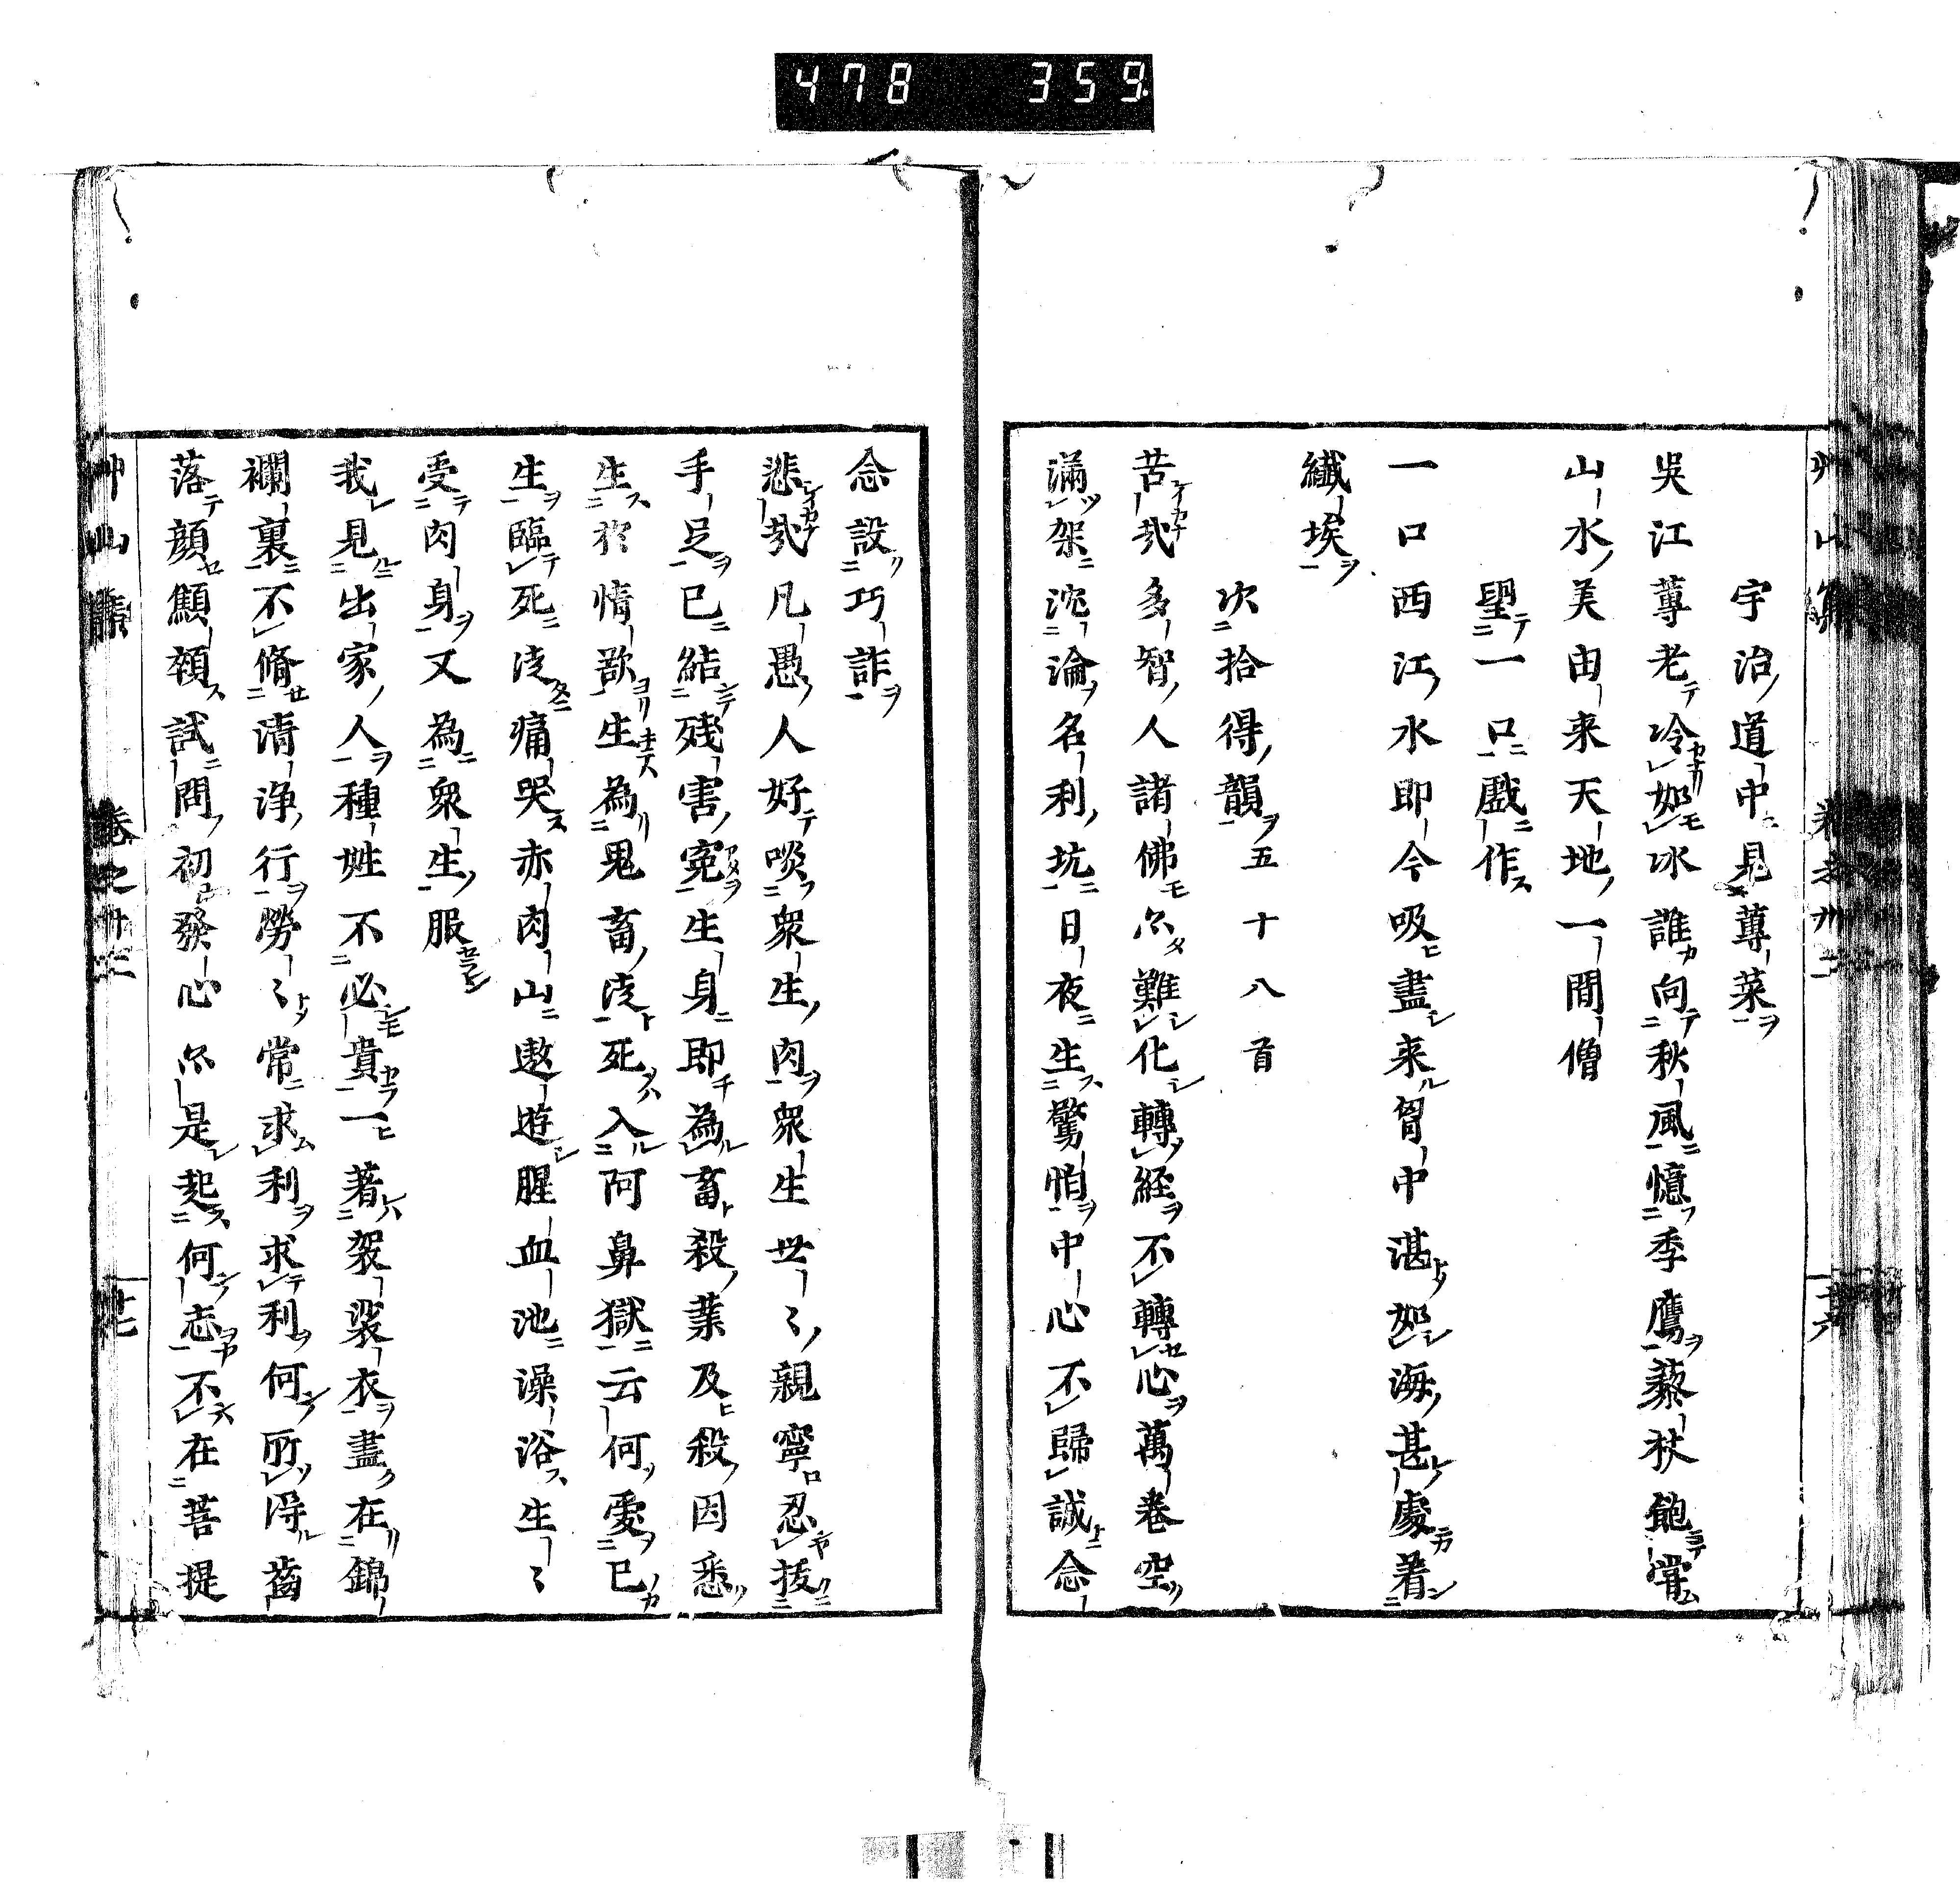 478 359
宇治道中見蓴菜
吳江蓴老冷如冰誰向秋風憶季鷹藜杖飽甞
山水美由来天地一間僧
望一口戲作
一口西江水即今吸盡来胷中湛如海甚處着
纎埃
次拾得韻五十八首
苦㢤多智人諸佛尒難化轉経不轉心萬卷空
滿架沈淪名利坑日夜生驚怕中心不歸誠念
念設巧詐
悲㢤凡愚人好啖衆生肉衆生世〻親寧忍拔
手足已結殘害寃生身即為畜殺業及殺因悉
生於情欲生為鬼畜徒死入阿鼻獄云何愛已
生臨死徒痛哭赤肉山遨遊腥血池澡浴生〻
受肉身又為衆生服
我見出家人種姓不必貴一著袈裟衣盡在錦
襴裏不脩清淨行勞〻常求利求利何所得齒
落顔顦顇試問初發心尒是起何志不在菩提
艸山集 卷之卅三 廿七